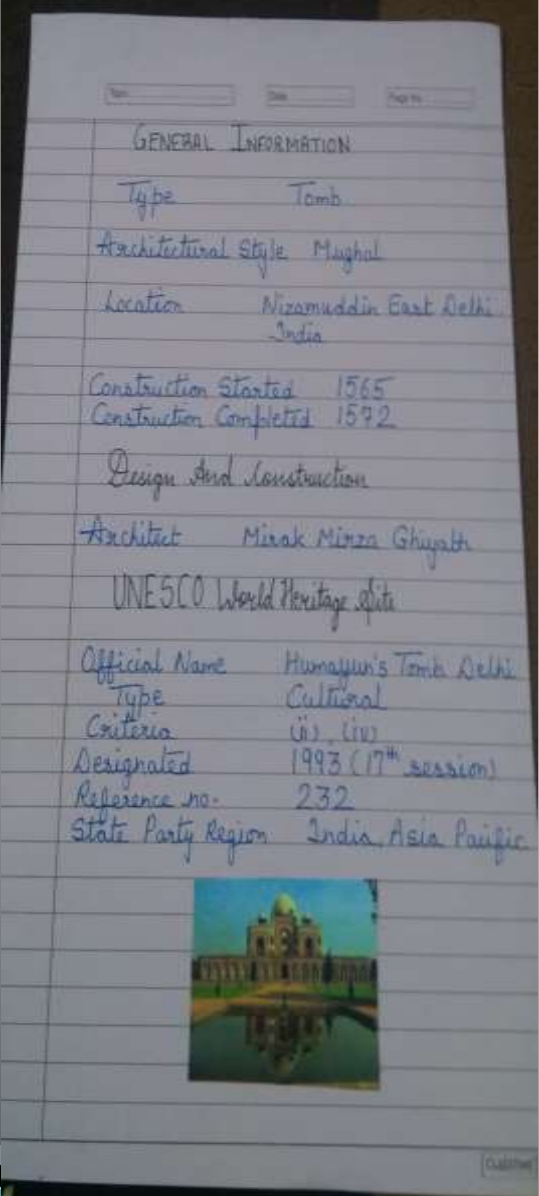 Topic Date Page No.
GENERAL INFORMATION
Type Tomb
Architectural Style Mughal
Location Nizamuddin East Delhi
India
Construction Started 1565
Construction Completed 1572
Design And Construction
Architect Mirak Mirza Ghiyath
UNESCO World Heritage Site
Official Name Humayun's Tomb Delhi
Type Cultural
Criteria (ii), (iv)
Designated 1993 (17th session)
Reference no. 232
State Party Region India, Asia Pacific